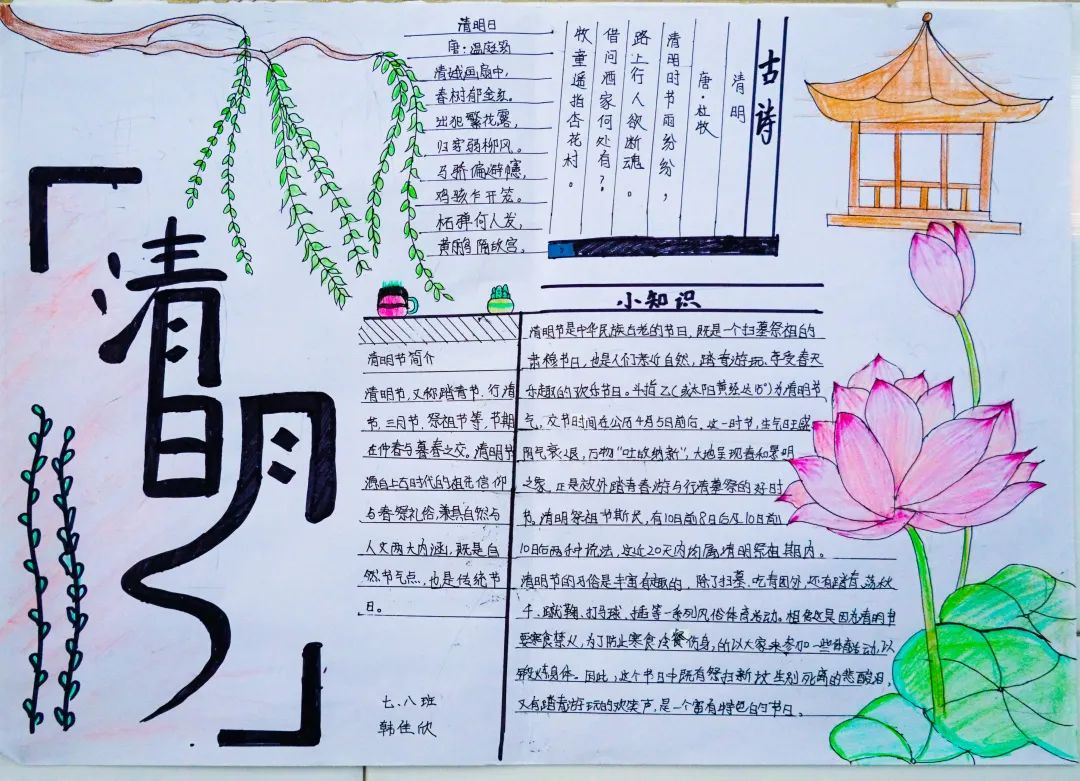 清明
清明日
唐·温庭筠
清娥画扇中，
春树郁金红。
出犯繁花露，
归穿弱柳风。
马骄偏避幰，
鸡骇乍开笼。
柘弹何人发，
黄鹂隔故宫。
古诗
清明
唐·杜牧
清明时节雨纷纷，
路上行人欲断魂。
借问酒家何处有？
牧童遥指杏花村。
清明节简介
清明节，又称踏青节、行清
节、三月节、祭祖节等，节期
在仲春与暮春之交。清明节
源自上古时代的祖先信仰
与春祭礼俗，兼具自然与
人文两大内涵，既是自
然节气点，也是传统节
日。
七、八班
韩佳欣
小知识
清明节是中华民族古老的节日，既是一个扫墓祭祖的
肃穆节日，也是人们亲近自然，踏青游玩、享受春天
乐趣的欢乐节日。斗指乙（或太阳黄经达15°）为清明节
气，交节时间在公历4月5日前后。这一时节，生气旺盛
阴气衰退，万物“吐故纳新”，大地呈现春和景明
之象，正是效外踏青春游与行清墓祭的好时
节。清明祭祖节斯长，有10日前8日后及10日前
10日后两种说法，这近20天内均属清明祭祖期内。
清明节的习俗是丰富有趣的，除了扫墓、吃青团外，还有踏青、荡秋
千、蹴鞠、打马球、插等一系列风俗体育活动。相传这是因为清明节
要寒食禁火，为了防止寒食冷餐伤身，所以大家来参加一些体育活动，以
锻炼身体。因此，这个节日中既有祭扫新坟生别死离的悲酸泪，
又有踏青游玩的欢笑声，是一个富有特色的节日。